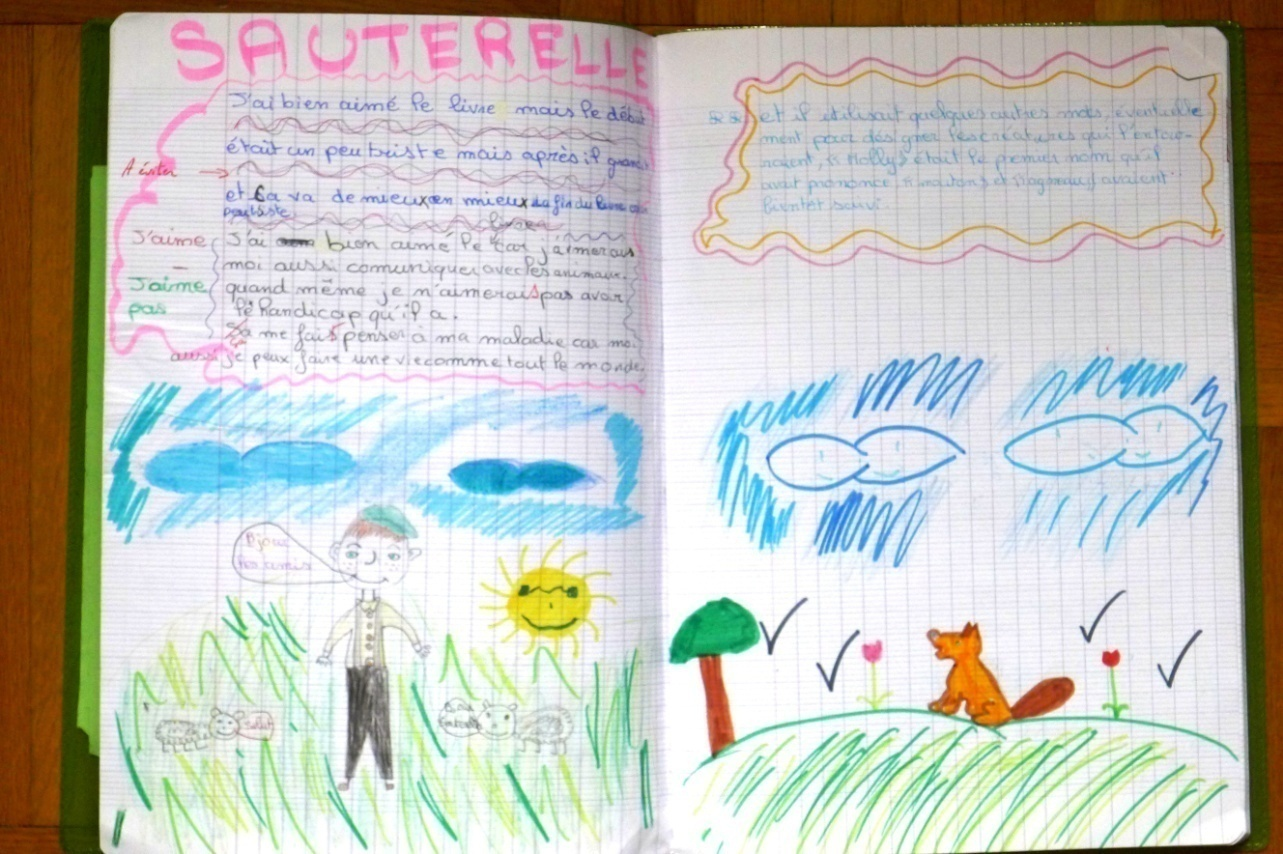 SAUTERELLE
J'ai bien aimé le livre mais le début
était un peu triste mais après il grandi
A éviter
et Ca va de mieux en mieux la fin du livre
peu triste.
livre
J'aime
J'ai bien aimé le car j'aimerais
moi aussi comuniquer avec les animaux.
J'aime
quand même je n'aimerais pas avoir
pas
le handicap qu'il a.
Sa me fais penser à ma maladie car moi
aussi je peux faire une vie comme tout le monde.
Bjour
les amis
et il utilisait quelques autres mots, éventuelle
ment pour désigner les créatures qui l'entou-
raient, "Molly" était le premier nom qu'il
avait prononcé, "moutons et "agneau" avaient
bientôt suivi.